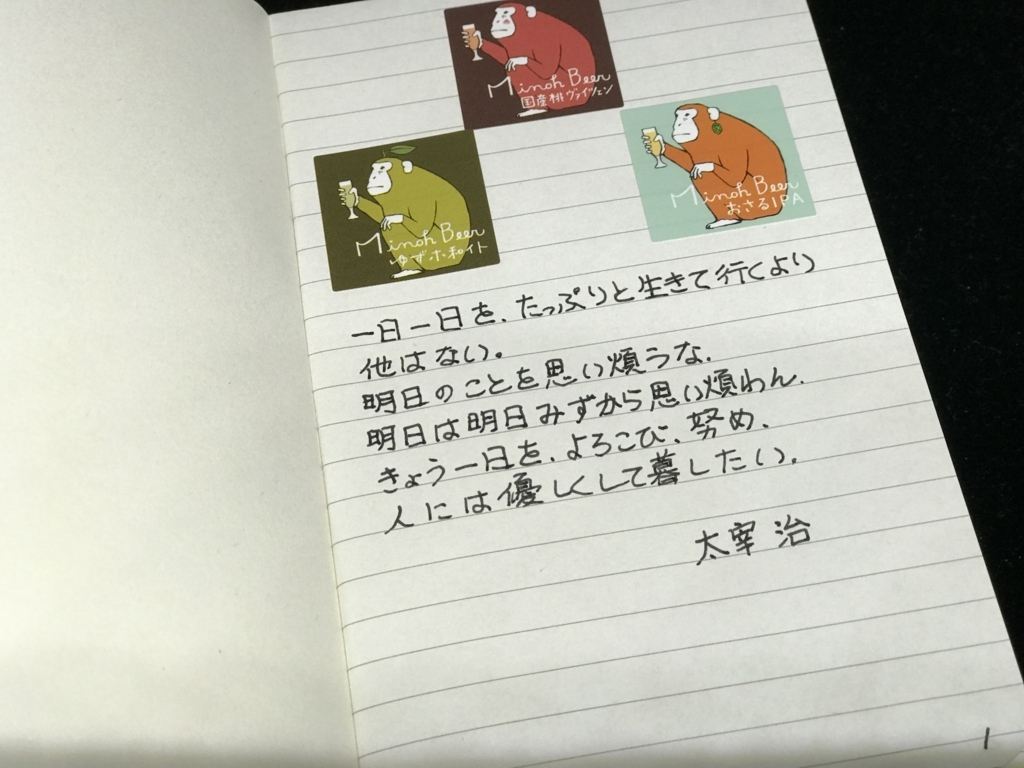 Minoh Beer
国産桃ヴァイツェン
Minoh Beer
ゆずホ和イト
Minoh Beer
おさるIPA
一日一日を、たっぷりと生きて行くより
他はない。
明日のことを思い煩うな。
明日は明日みずから思い煩わん。
きょう一日を、よろこび、努め、
人には優しくして暮したい。
太宰治
1